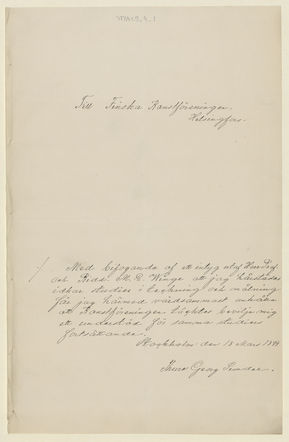 Till Finska Konstföreningen.
Helsingfors.
Med bifogande af ett intyg utaf Herr Prof.
och Ridd. M. E. Winge att jag härstädes
idkar studier i teckning och målning
får jag härmed vördsammast anhålla
att Konstföreningen täcktes bevilja mig
ett understöd för samma studiers
fortsättande.
Stockholm den 18 Mars
Georg